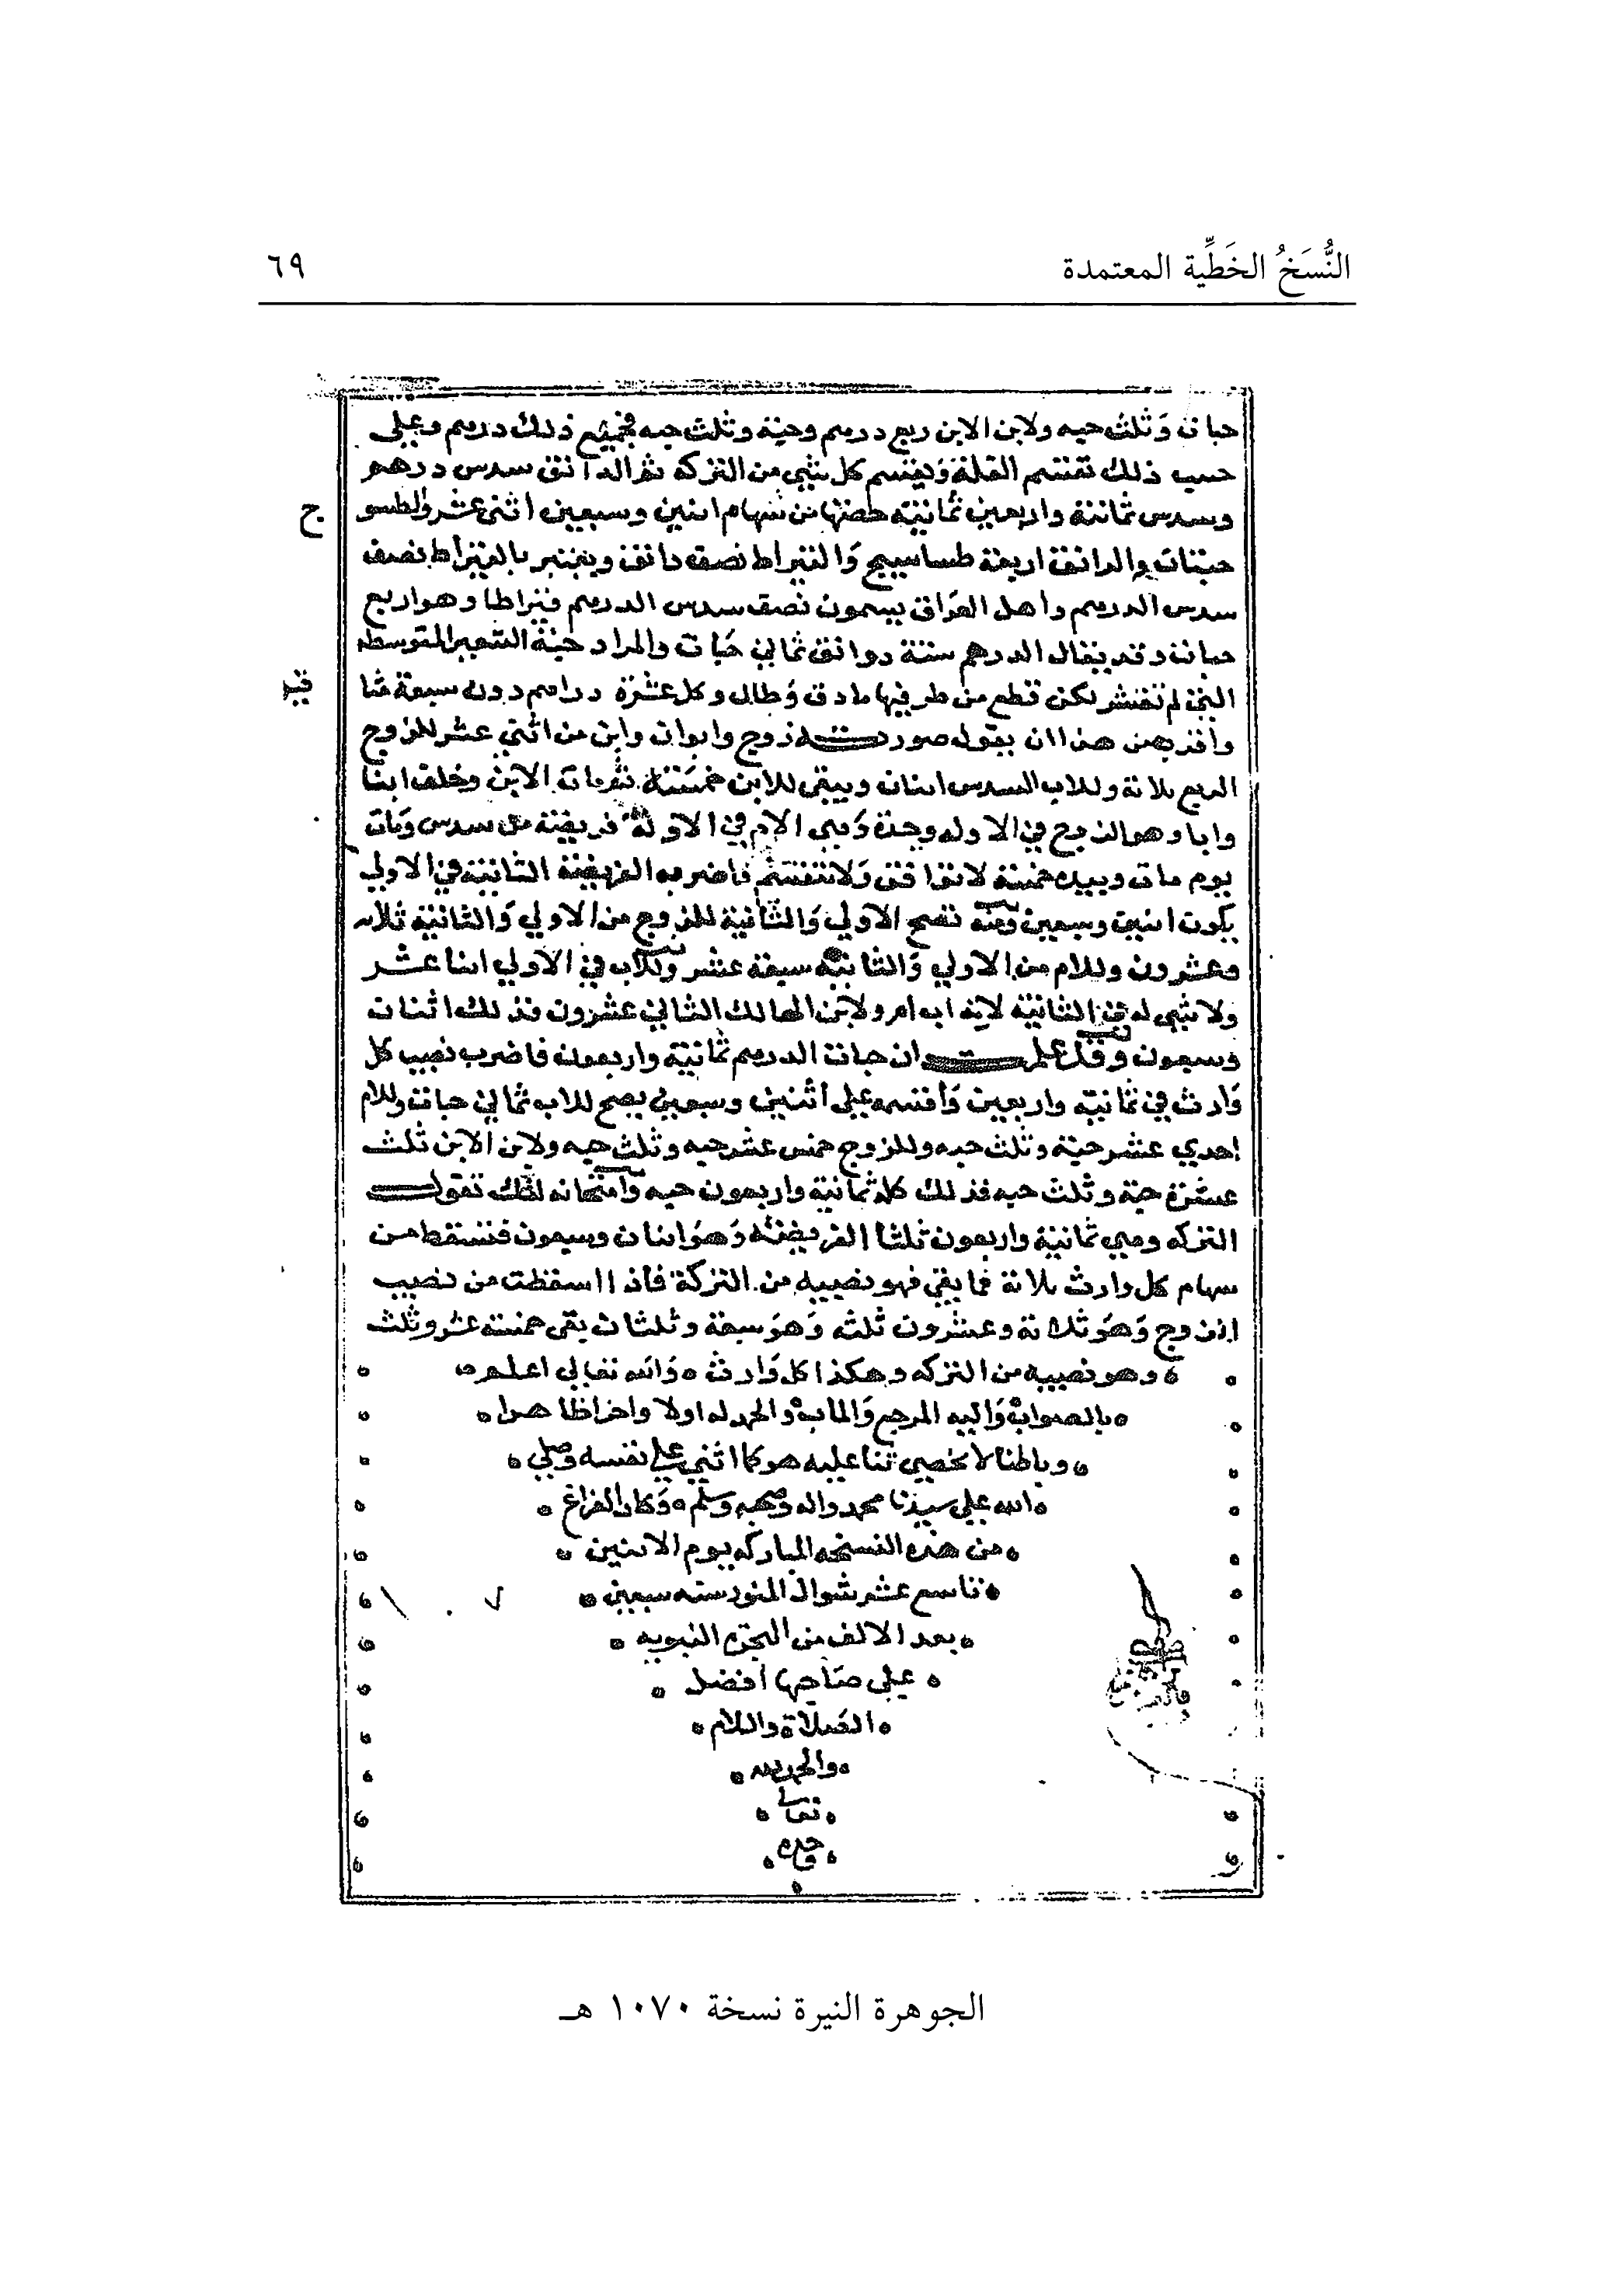 النُّسَخُ الخَطِّية المعتمدة
٦٩
حبات وَثلث حبه ولابن الابن ربع درهم وحبة وثلث حبه فجميع ذلك درهم وعلى
حسب ذلك تقسم الغلة وَيقسم كل شي من التركه ثم الدانق سدس درهم
وسدس ثمانية واربعين ثمانية حصتها من سهام اثنين وسبعين اثنى عشر والطسو
ج
حبتان والدانق اربعة طساسيج وَالقيراط نصف دانق ويعتبر بالقيراط نصف
سدس الدرهم واهل العراق يسمون نصف سدس الدرهم قيراطا وهو اربع
حبات وقد يقال الدرهم ستة دوانق ثماني حَبات والمراد حبة الشعير المتوسطه
التي لم تقشر لكن قطع من طرفيها ما دق وَطال وكل عشرة دراهم دون سبعة مثا
قيل
وا بوان وابن من اثني عشر للزوج
الربع ثلاثة وللاب السدس اثنان ويبقى للابن خمسة ثم مات الابن وخلف ابنا
وابا وهو الزوج في الاوله وجدة وَهي الام في الاوله فريضته من سدس وَمات
يوم مات وبيده خمسة لاتوافق وَلاتنقسم فاضرب الفريضة الثانية في الاولي
يكون اثنين وسبعين ومنه تصح الاولي وَالثانية للزوج من الاولي وَالثانية ثلاثه
وعشرون وللام من الاولي وَالثانية سبعة عشر وللاب في الاولي اثنا عشر
ولا شي له في الثانية لانه اب ام ولابن الهالك الثاني عشرون فذلك اثنان
وسبعون وقد علم ان حبات الدرهم ثمانية واربعون فاضرب نصيب كل
وَارث في ثمانية واربعين وَاقسمه على اثنين وسبعين يصح للاب ثماني حبات وللام
احدي عشر حبة وثلث حبه وللزوج خمس عشر حبه وثلث حبه ولابن الابن ثلث
عشرة حبة وثلث حبه فذلك كله ثمانية واربعون حبه وامتحانه انك تقول
التركه وهي ثمانية واربعون ثلثا الفريضة وَهو اثنان وسبعون فتسقط من
سهام كل وارث ثلاثة فما بقي فهو نصيبه من التركة فاذا اسقطت من نصيب
الزوج وَهو ثلاثة وعشرون ثلثه وَهو سبعة وثلثان بقى خمسة عشر وثلث
وهو نصيبه من التركه وهكذا كل وَارث ه وَالله تعالي اعلم
بالصواب وَاليه المرجع وَالماب والحمد لله اولا واخرا ظاهرا
وباطنا لا نحصي ثنا عليه هو كما اثني على نفسه وصلي
الله على سيدنا محمد واله وصحبه وسلم ه وَكان الفراغ
من هذه النسخه المباركه يوم الاثنين
تاسع عشر شوال المنور سنه سبعين
بعد الالف من الهجرة النبويه
على صَاحبها افضل
الصَلاة والسلام
والحمد لله
تعالى
وحده
الجوهرة النيرة نسخة ١٠٧٠ هـ